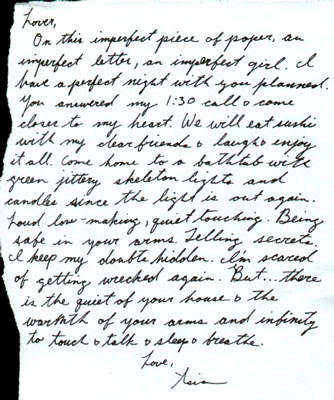 Lover,
On this imperfect piece of paper, an
imperfect letter, an imperfect girl. I
have a perfect night with you planned.
You answered my 1:30 call & come
closer to my heart. We will eat sushi
with my dear friends & laugh & enjoy
it all. Come home to a bathtub with
green jittery skeleton lights and
candles since the light is out again.
Loud love-making, quiet touching. Being
safe in your arms. Telling secrets.
I keep my double hidden. I'm scared
of getting wrecked again. But...there
is the quiet of your house & the
warmth of your arms and infinity
to touch & talk & sleep & breathe.
Love,